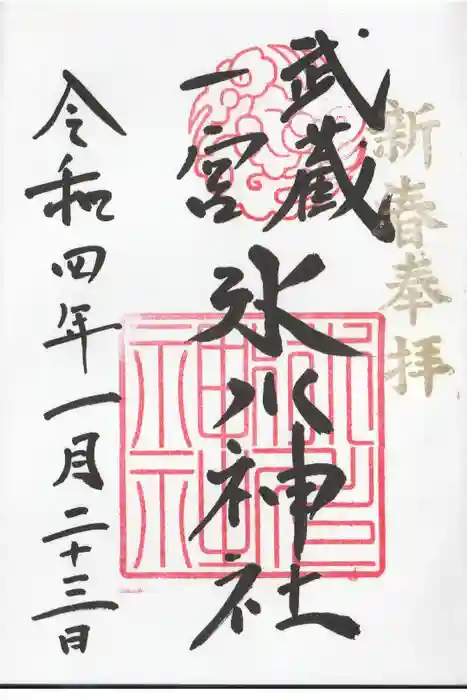 新春奉拝
武蔵
一宮
氷川神社
令和四年一月二十三日
氷川
神社